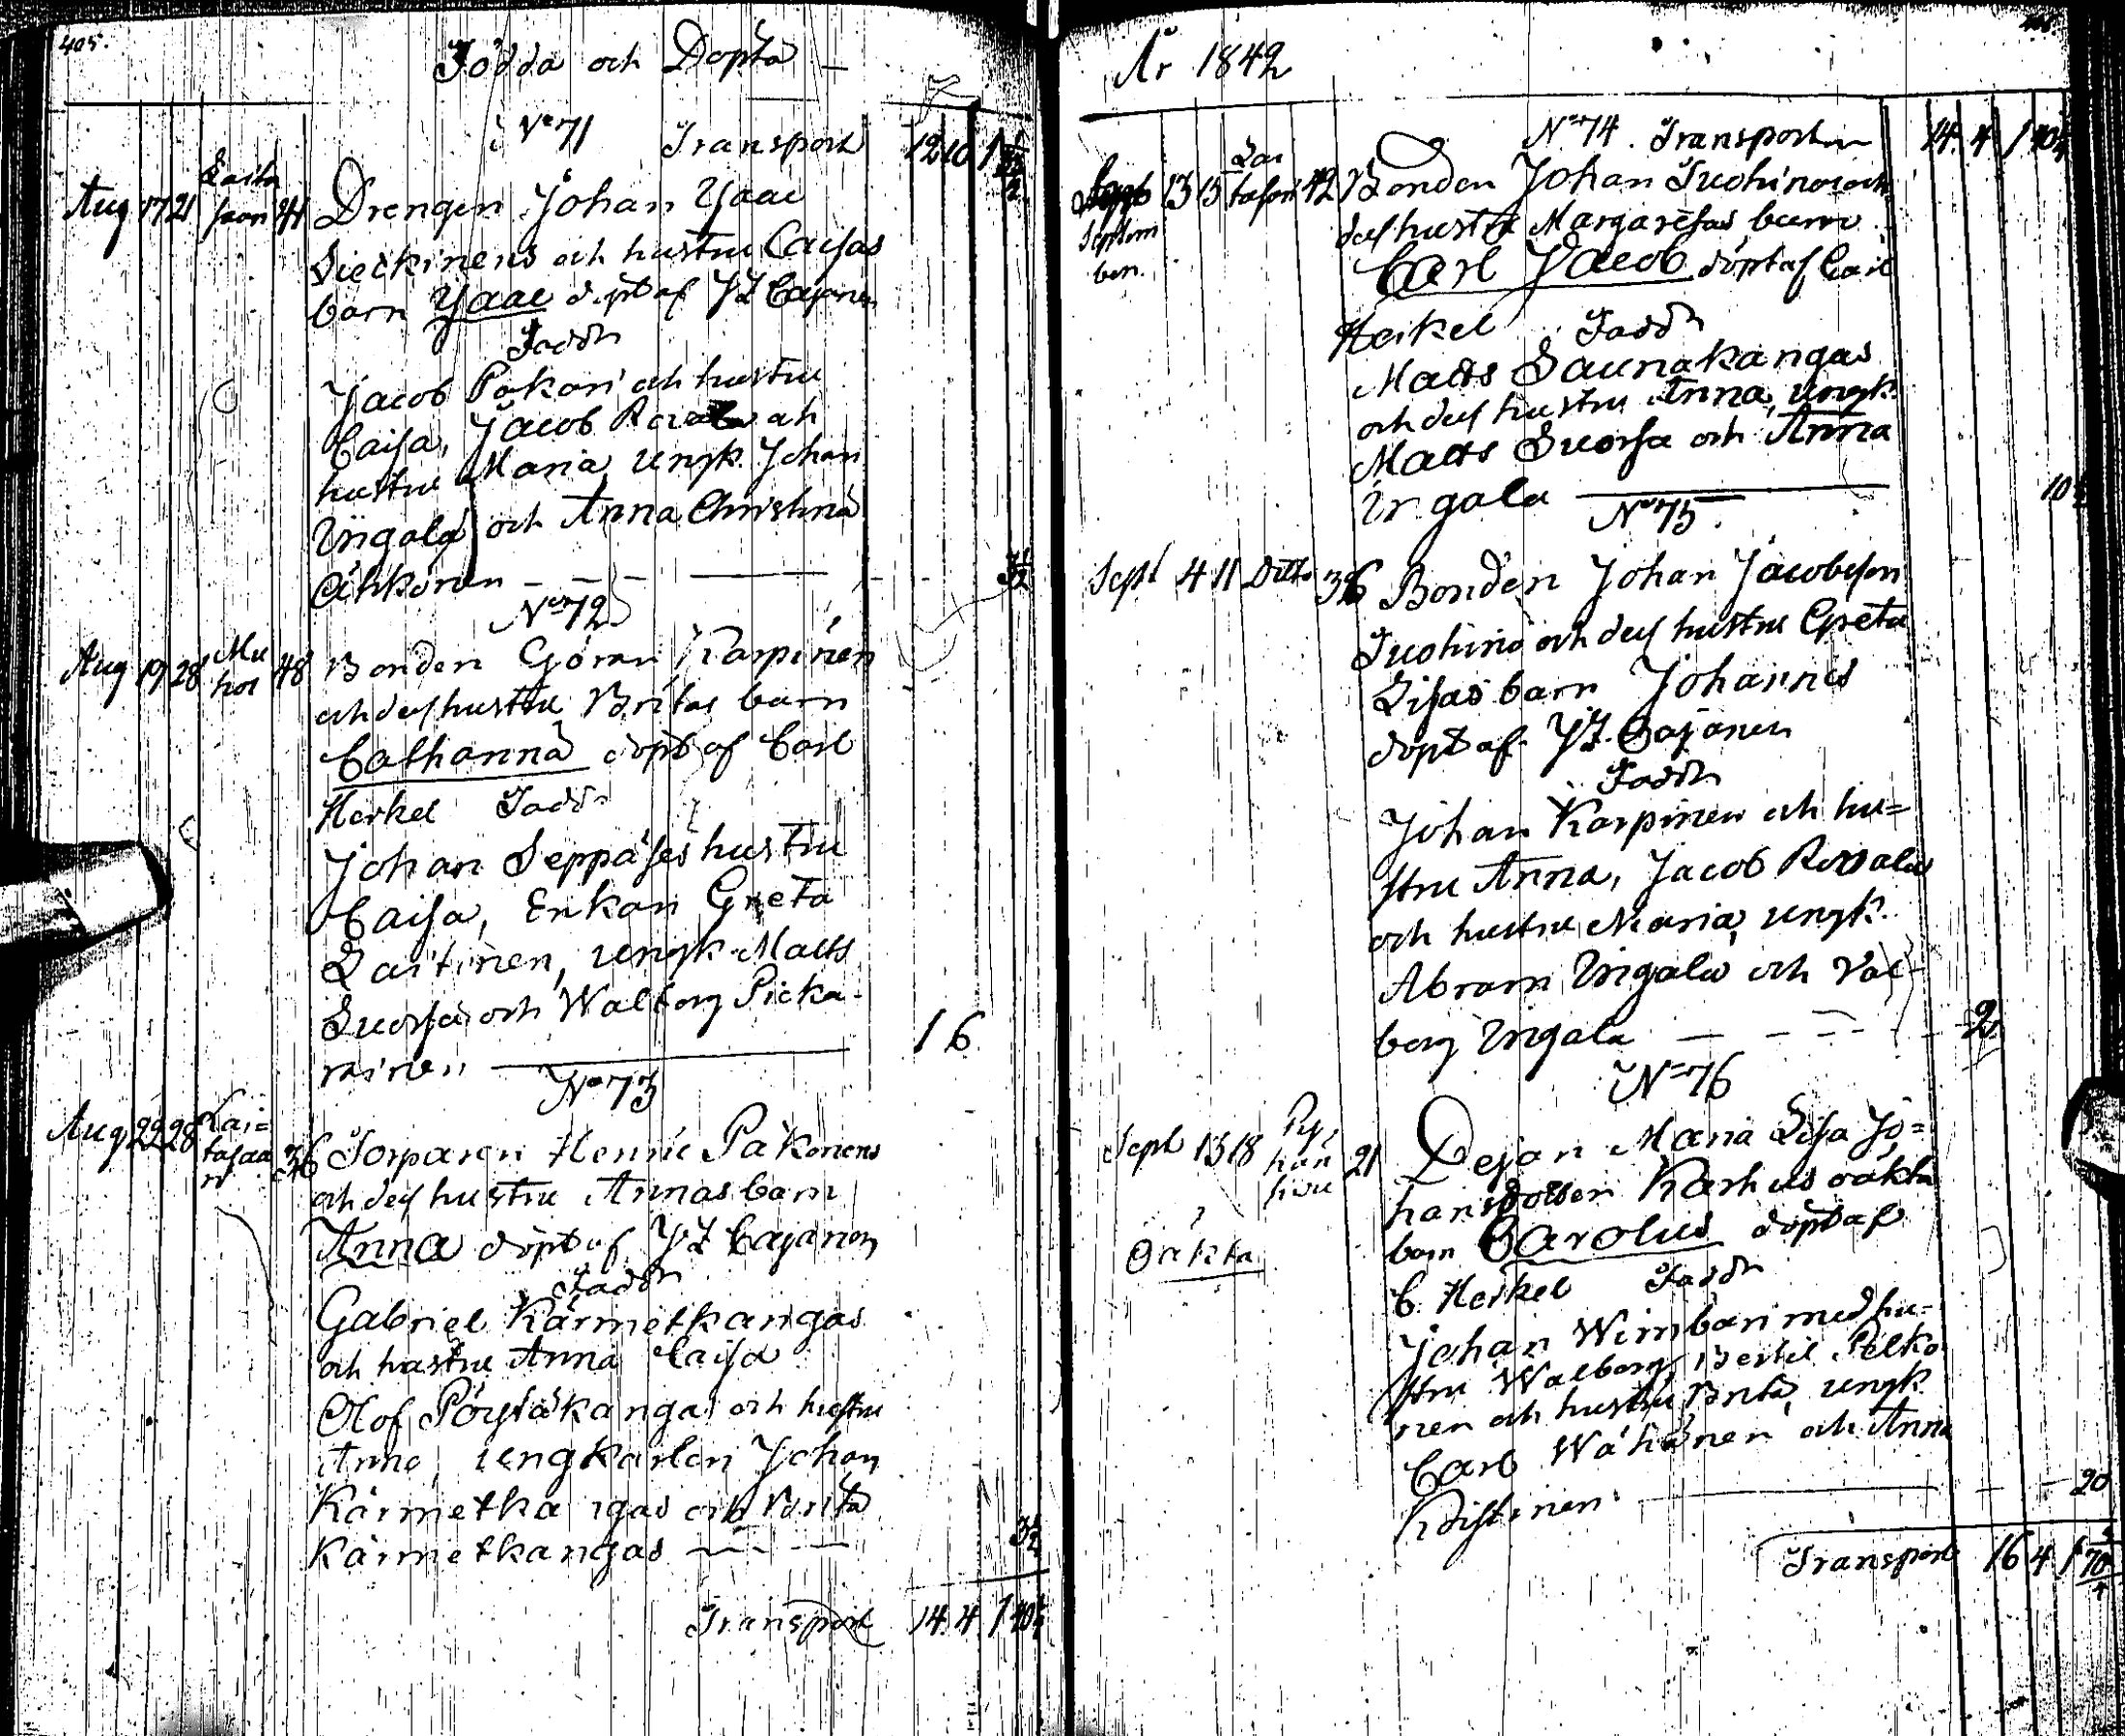 405.
Födda och Döpta
No 71 Transport 12 10 1
Aug 17 21 Laita saari 44 Drengen Johan Isaac
Sieckinens och hustru Caisas
barn Isaac döpt af J I Cajanen
Fadd:
Jacob Pokari och hustru
Caisa, Jacob och
hustru Maria ungk. Johan
Uhgala och Anna Christina
No 72
Aug 19 28 Mu hos 48 Bonden Göran Karpinen
och dess hustru Britas barn
Catharina döpt af Carl
Heikel Fadd:
Johan Seppäses hustru
Caisa, Enkan Greta
Laitinen, ungk. Matts
Suorsa och Walborg Picka-
rainen 16
No 73
Aug 22 28 Lai= tasaa ri 36 Torparen Henric Påkonens
och dess hustru Annas barn
Anna döpt af J I Cajanen
Fadd:
Gabriel Kärmetkangas
och hustru Anna Caisa
Olof Pöystäkangas och hustru
Anna, ungkarlen Johan
Kärmetkangas och Brita
Kärmetkangas 3½
Transport 14 4 1
År 1842
No 74. Transport 14. 4 1
Septem ber. 13 15 Lai tasari 42 Bonden Johan Tuohino och
dess hustru Margaretas barn
Carl Jacob döpt af Carl
Heikel Fadd:
Matts Saunakangas
och dess hustru Anna, ungk.
Matts Suorsa och Anna
No 75.
Sept 4 11 Ditto 36 Bonden Johan Jacobsson
Tuohino och dess hustru Greta
Lisas barn Johannes
döpt af J I Cajanen
Fadd:
Johan Karpinen och hu=
stru Anna, Jacob
och hustru Maria, ungk.
Abram Uhgala och Val-
borg Uhgala 2
No 76
Sept 13 18 21 Pejan Maria Lisa Jo=
hansdotter Karhus oäkta
barn Carolus döpt af
Oäkta
C. Heikel Fadd:
Johan Wimbari med hu-
stru Walborg, Bertil Pelko
nen och hustru Brita, ungk
Carl Wähänen och Anna
20
Transport 16 4 1